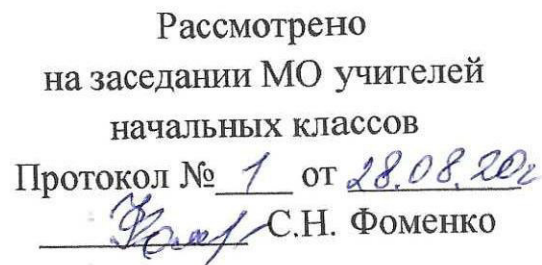 Рассмотрено
на заседании МО учителей
начальных классов
Протокол № 1 от 28.08.20г
С.Н. Фоменко